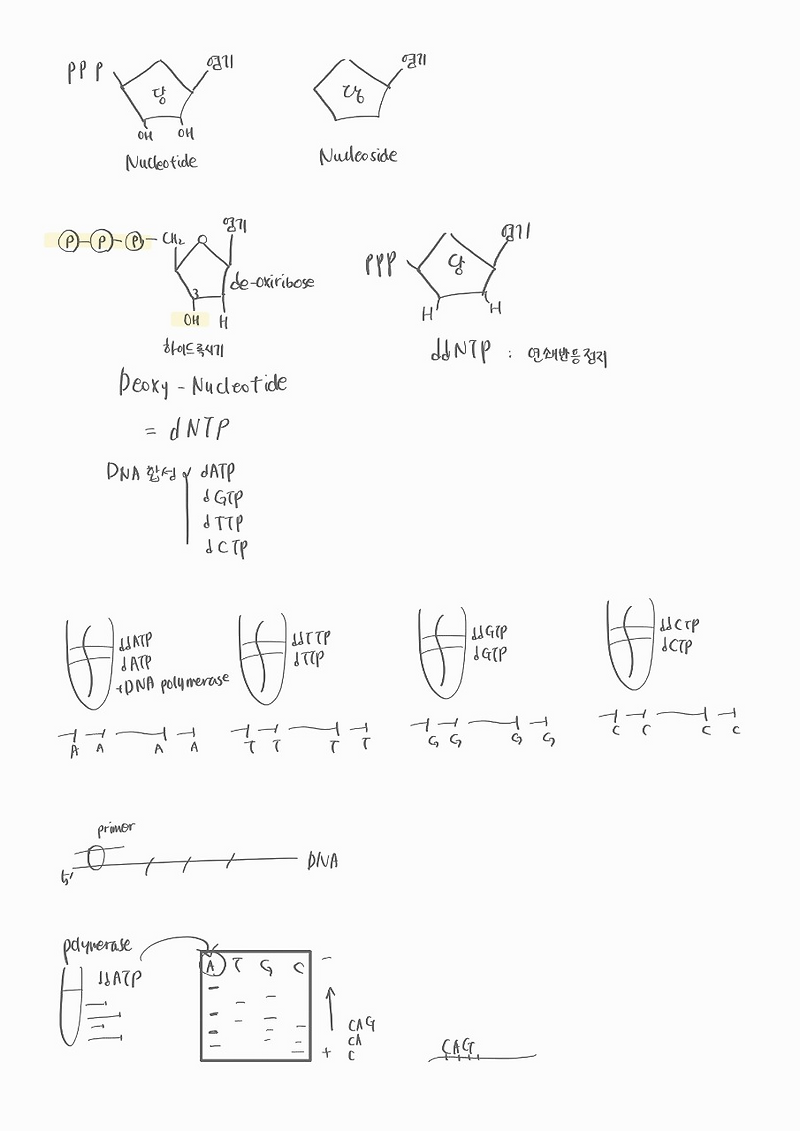 PPP 염기 염기
당 당
OH OH
Nucleotide Nucleoside
염기 염기
P-P-P-CH₂ O
PPP 당
de-oxiribose
3
OH H H H
하이드록시기 ddNTP : 연쇄반응정지
Deoxy-Nucleotide
= dNTP
DNA 합성 dATP
dGTP
dTTP
dCTP
ddATP ddTTP ddGTP ddCTP
dATP dTTP dGTP dCTP
+DNA polymerase
A A A A T T T T G G G G C C C C
primor
5' DNA
polymerase
ddATP A T G C -
CAG
CA
+ C
CAG